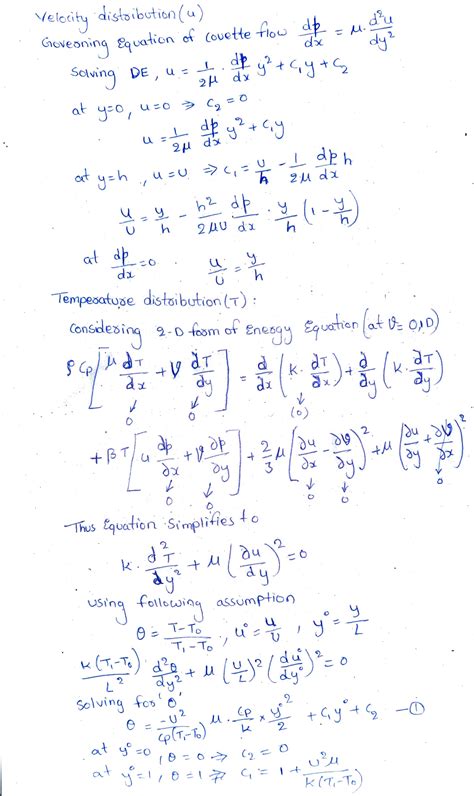 Velocity distribution (u)
Governing Equation of couette flow dp/dx = μ. d²u/dy²
Solving DE, u = 1/2μ . dp/dx y² + C₁y + C₂
at y=0, u=0 ⇒ C₂ = 0
u = 1/2μ dp/dx y² + C₁y
at y=h, u=U ⇒ C₁ = U/h - 1/2μ dp/dx h
u/U = y/h - h²/2μU dp/dx . y/h (1 - y/h)
at dp/dx = 0 . u/U = y/h
Temperature distribution (T) :
Considering 2-D form of Energy Equation (at V = 0, D)
ρCp [μ dT/dx + V dT/dy] = d/dx (k. dT/dx) + d/dy (k. dT/dy)
↓ 0 ↓ 0 ↓ (0)
+ βT [u dp/dx + V ∂p/∂y] + 2/3 μ (∂u/∂x - ∂V/∂y)² + μ (∂u/∂y + ∂V/∂x)²
↓ 0 ↓ 0 ↓ 0 ↓ 0 ↓ 0
Thus Equation Simplifies to
k. d²T/dy² + μ (∂u/dy)² = 0
using following assumption
θ = T-T₀/T₁-T₀, u° = u/U, y° = y/L
k(T₁-T₀)/L² d²θ/dy² + μ (U/L)² (du°/dy°)² = 0
solving for 'θ'
θ = -U²/cp(T₁-T₀) μ. cp/k × y°²/2 + C₁y° + C₂ — ①
at y°=0, θ=0 ⇒ C₂ = 0
at y°=1, θ=1 ⇒ C₁ = 1 + U²μ/k(T₁-T₀)